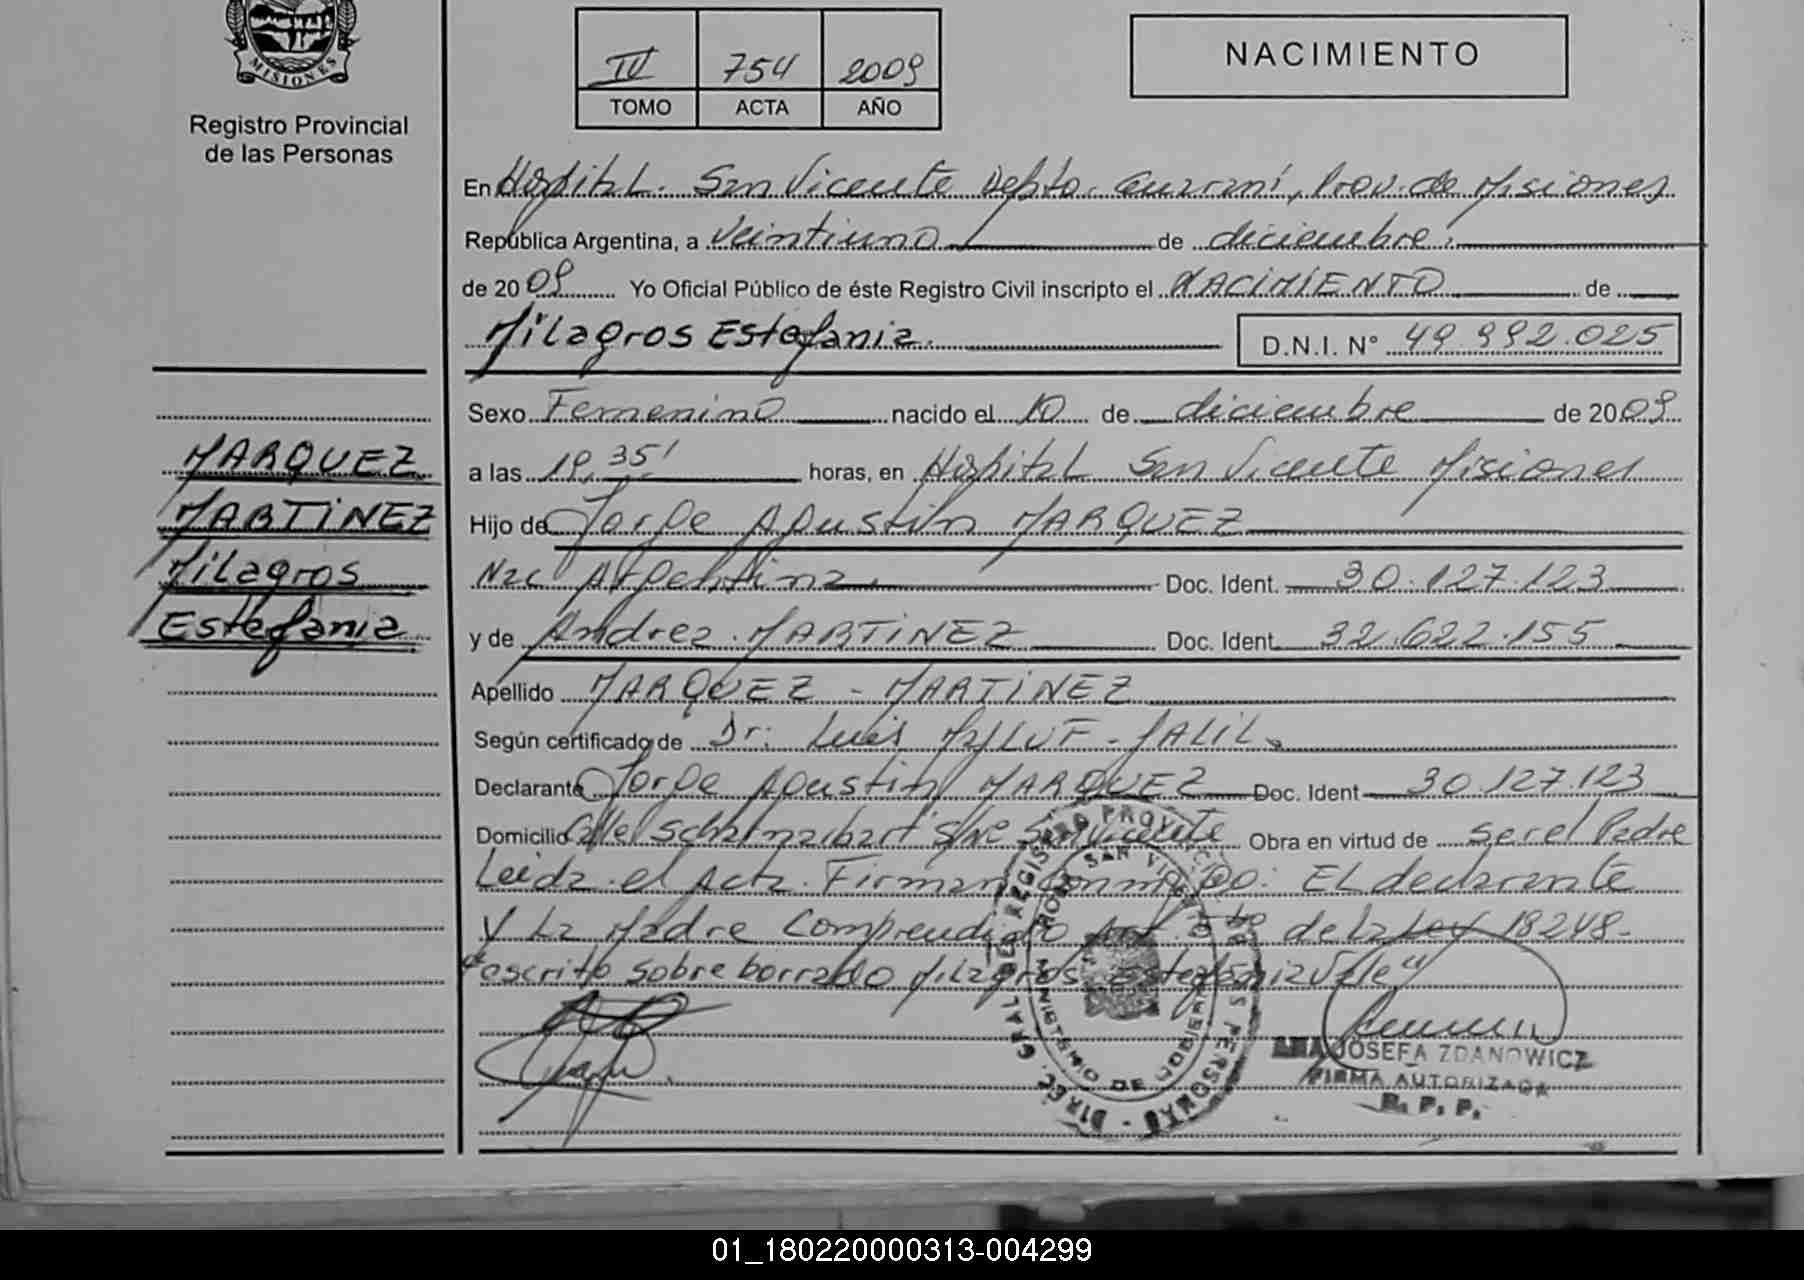 MISIONES
Registro Provincial
de las Personas
IV 754 2009
TOMO ACTA AÑO
NACIMIENTO
En Hospital. San Vicente Depto. Guaraní, Prov. de Misiones
República Argentina, a veintiuno de diciembre.
de 2009 Yo Oficial Público de éste Registro Civil inscripto el NACIMIENTO de
Milagros Estefania. D.N.I. N° 49.992.025
Sexo Femenino nacido el 10 de diciembre de 2009
a las 19,35' horas, en Hospital San Vicente Misiones
Hijo de Jorge Agustin MARQUEZ
Nac Argentina. Doc. Ident. 30.127.123
y de Andrea MARTINEZ Doc. Ident. 32.622.155
Apellido MARQUEZ - MARTINEZ
Según certificado de Dr: Luis - JALIL
Declarante Jorge Agustin MARQUEZ Doc. Ident 30.127.123
Domicilio Calle S/Nº San Vicente Obra en virtud de ser el Padre
Leida el Acta. Firman conmigo: EL declarante
y La Madre Comprendido Art. 5to de la Ley 18248.-
"escrito sobre borrado Milagros Estefania Vale"
MARQUEZ
MARTINEZ
Milagros
Estefania
DIREC. GRAL. DE REGISTRO PROVINCIAL DE LAS PERSONAS
SAN VICENTE
MINISTERIO DE GOBIERNO
ANA JOSEFA ZDANOWICZ
FIRMA AUTORIZADA
R. P. P.
01_180220000313-004299